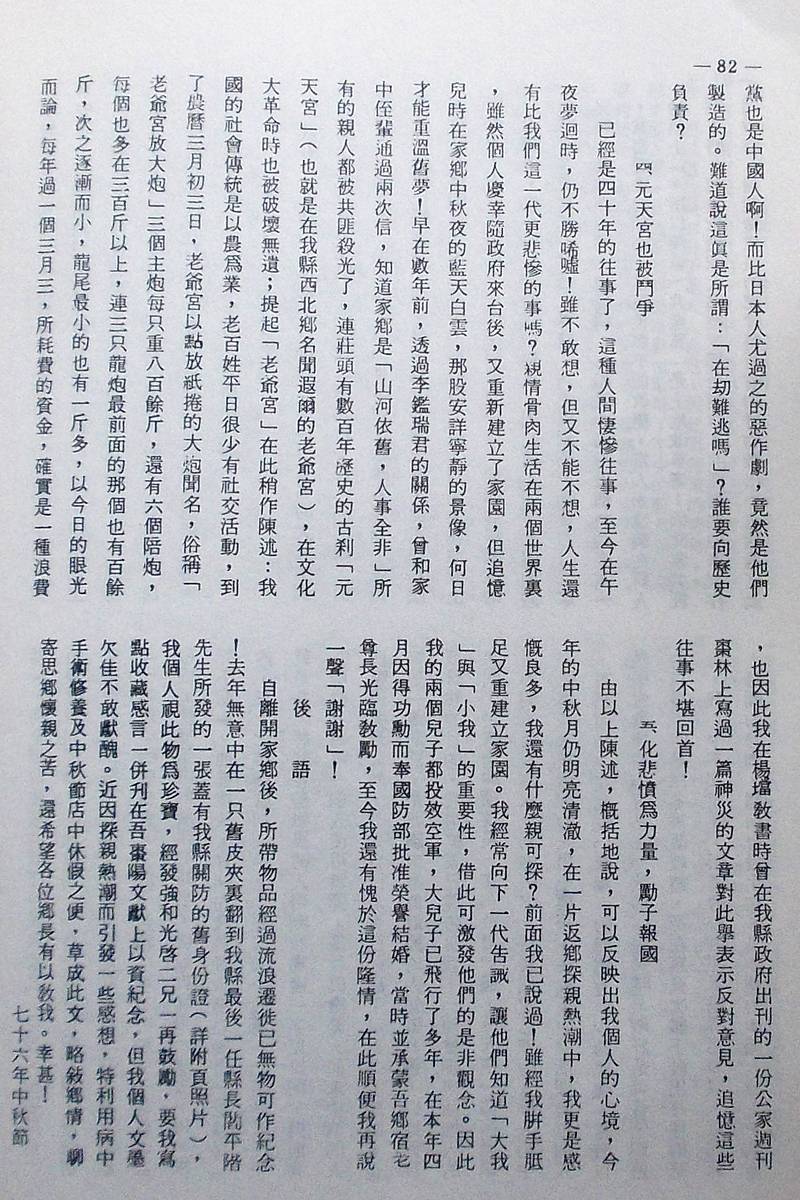 — 82 —
黨也是中國人啊！而比日本人尤過之的惡作劇，竟然是他們
製造的。難道說這眞是所謂：「在刧難逃嗎」？誰要向歷史
負責？
四、元天宮也被鬥爭
已經是四十年的往事了，這種人間悽慘往事，至今在午
夜夢迴時，仍不勝唏噓！雖不敢想，但又不能不想，人生還
有比我們這一代更悲慘的事嗎？親情骨肉生活在兩個世界裏
，雖然個人慶幸隨政府來台後，又重新建立了家園，但追憶
兒時在家鄉中秋夜的藍天白雲，那股安詳寧靜的景像，何日
才能重溫舊夢！早在數年前，透過李鑑瑞君的關係，曾和家
中侄輩通過兩次信，知道家鄉是「山河依舊，人事全非」所
有的親人都被共匪殺光了，連莊頭有數百年歷史的古刹「元
天宮」（也就是在我縣西北鄉名聞遐爾的老爺宮），在文化
大革命時也被破壞無遺；提起「老爺宮」在此稍作陳述：我
國的社會傳統是以農爲業，老百姓平日很少有社交活動，到
了農曆三月初三日，老爺宮以點放紙捲的大炮聞名，俗稱「
老爺宮放大炮」三個主炮每只重八百餘斤，還有六個陪炮，
每個也多在三百斤以上，連三只龍炮最前面的那個也有百餘
斤，次之逐漸而小，龍尾最小的也有一斤多，以今日的眼光
而論，每年過一個三月三，所耗費的資金，確實是一種浪費
，也因此我在楊壋敎書時曾在我縣政府出刊的一份公家週刊
棗林上寫過一篇神災的文章對此舉表示反對意見，追憶這些
往事不堪回首！
五、化悲憤爲力量，勵子報國
由以上陳述，概括地說，可以反映出我個人的心境，今
年的中秋月仍明亮清澈，在一片返鄉探親熱潮中，我更是感
慨良多，我還有什麼親可探？前面我已說過！雖經我胼手胝
足又重建立家園。我經常向下一代告誡，讓他們知道「大我
」與「小我」的重要性，借此可激發他們的是非觀念。因此
我的兩個兒子都投效空軍，大兒子已飛行了多年，在本年四
月因得功勳而奉國防部批准榮譽結婚，當時並承蒙吾鄉宿老
尊長光臨敎勵，至今我還有愧於這份隆情，在此順便我再說
一聲「謝謝」！
後　語
自離開家鄉後，所帶物品經過流浪遷徙已無物可作紀念
！去年無意中在一只舊皮夾裏翻到我縣最後一任縣長閻平階
先生所發的一張蓋有我縣關防的舊身份證（詳附頁照片），
我個人視此物爲珍寶，經發強和光啓二兄一再鼓勵，要我寫
點收藏感言一併刊在吾棗陽文獻上以資紀念，但我個人文墨
欠佳不敢獻醜。近因探親熱潮而引發一些感想，特利用病中
手術修養及中秋節店中休假之便，草成此文，略敍鄉情，聊
寄思鄉懷親之苦，還希望各位鄉長有以敎我。幸甚！
七十六年中秋節